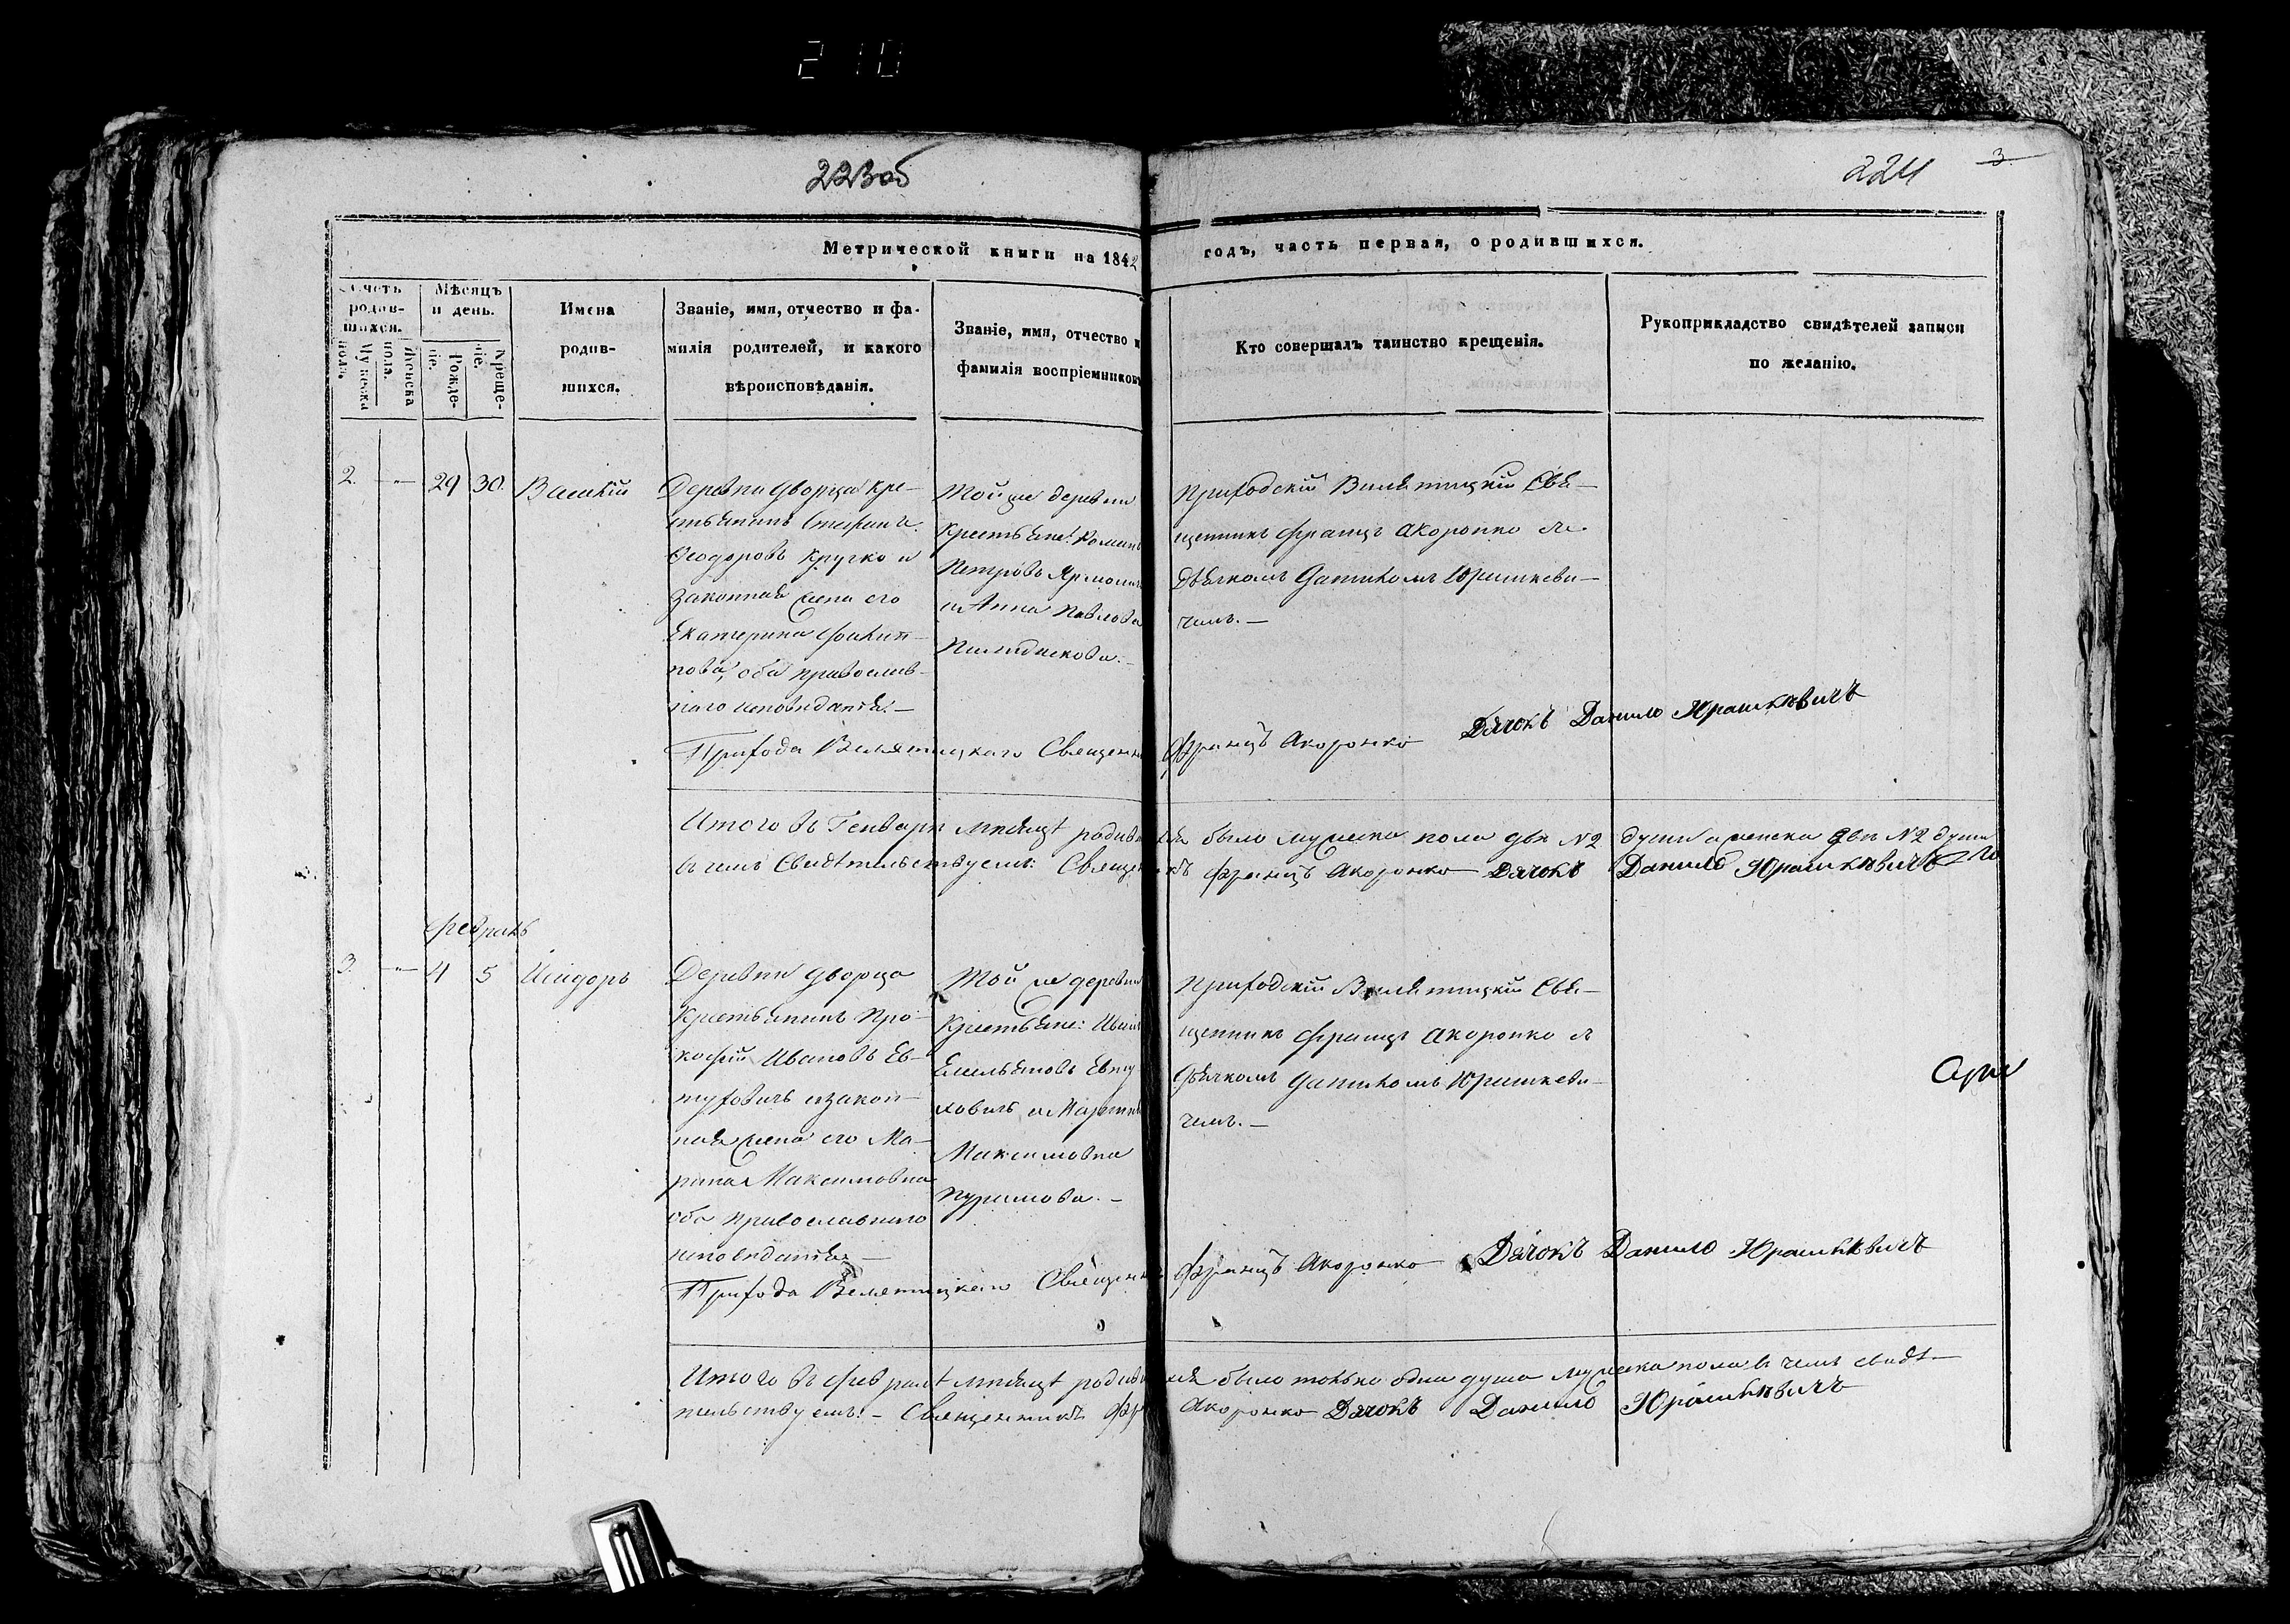 210
223об
224
3
Метрической книги на 1842
годъ, часть первая, о родившихся.
Счетъ родив-шихся.
Мужеска пола.
Женска пола.
Мѣсяцъ и день.
Рожде-ніе.
Креще-ніе.
Имена
родив-
шихся.
Званіе, имя, отчество и фа-
милія родителей, и какого
вѣроисповѣданія.
Званіе, имя, отчество и
фамилія воспріемниковъ
Кто совершалъ таинство крещенія.
Рукоприкладство свидѣтелей записи
по желанію.
2. — 29 30. Василій
Деревни Дворца Кре-
стьянинъ Стефанъ
Феодоровъ Кручко и
законная жена его
Екатерина
нова, оба православ-
наго исповѣданія. —
Той же деревни
Крестьяне: Романъ
Петровъ Ярмолич
и Анна Павлова
Приходскій Вилятицкій Свя-
щенникъ Францъ Акоронко съ
Дьячкомъ Даниломъ Юрашкеви-
чемъ. —
Прихода Велятицкаго Священни
Францъ Акоронко Дячокъ Данило Юрашкѣвичъ
Итого въ Генварѣ мѣсяцѣ родив ся было мужеска пола двѣ № 2 души а женска двѣ № 2 души
въ чемъ Свидѣтельствуемъ: Священ къ Францъ Акоронко Дячокъ Данило Юрашкѣвичъ
Февраль
3. — 4 5 Исидоръ
Деревни Дворца
Крестьянинъ Про-
кофій Ивановъ Ев-
туховичъ и закон-
ная жена его Ма-
рина Максимовна
оба православнаго
исповѣданія —
Той же деревни
Крестьяне: Иван
Емельяновъ Евту
ховичъ и
Максимовна
Приходскій Вилятицкій Свя-
щенникъ Францъ Акоронко съ
Дьячкомъ Даниломъ Юрашкеви-
чемъ. —
Прихода Велятицкаго Священн
Францъ Акоронко Дячокъ Данило Юрашкѣвичъ
Итого въ Февралѣ мѣсяцѣ родив ся было только одна душа мужеска пола въ чемъ свидѣ-
тельствуемъ: — Священникъ Фр Акоронко Дячокъ Данило Юрашкѣвичъ